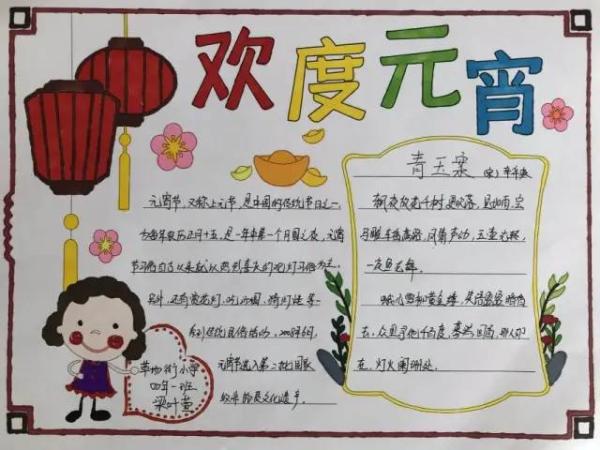 欢度元宵
元宵节，又称上元节，是中国的传统节日之一，
为每年农历正月十五，是一年中第一个月圆之夜，元宵
节习俗自古以来就以热烈喜庆的观灯习俗为主。
另外，还有赏花灯、吃汤圆、猜灯谜等一
系列传统民俗活动，2008年6月，
元宵节选入第二批国家
级非物质文化遗产。
青玉案
（宋）辛弃疾
东风夜放花千树，更吹落，星如雨，宝
马雕车香满路，凤箫声动，玉壶光转，
一夜鱼龙舞。
蛾儿雪柳黄金缕，笑语盈盈暗香
去，众里寻他千百度，蓦然回首，那人却
在，灯火阑珊处。
街小学
四年一班
梁叶萱